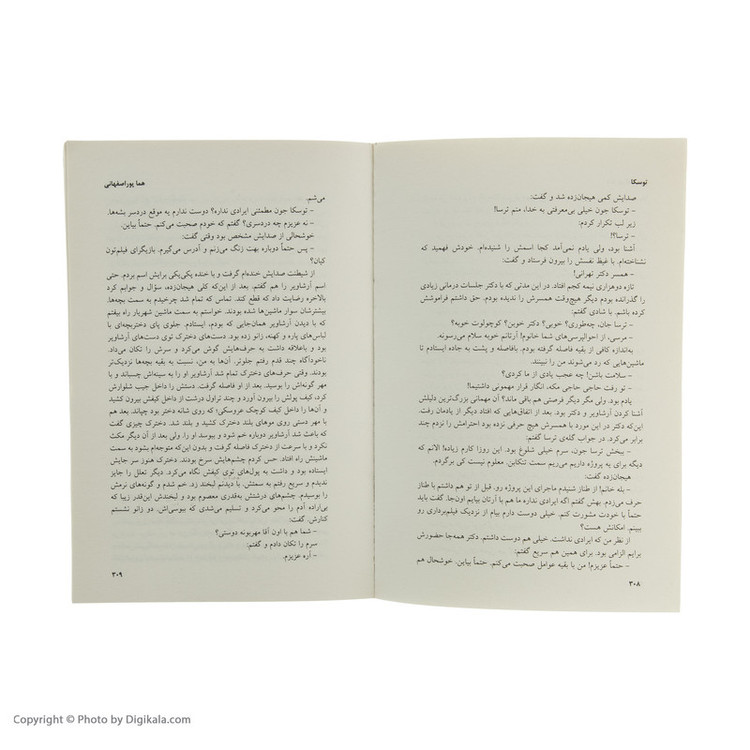 توسکا
صدایش کمی هیجان‌زده شد و گفت:
- توسکا جون خیلی بی‌معرفتی به خدا، منم ترسا؟
زیر لب تکرار کردم:
- ترسا؟!
آشنا بود، ولی یادم نمی‌آمد کجا اسمش را شنیده‌ام. خودش فهمید که
نشناخته‌ام. با غیظ نفسش را بیرون فرستاد و گفت:
- همسر دکتر تهرانی!
تازه دوهزاری نیمه کجم افتاد. در این مدتی که با دکتر جلسات درمانی زیادی
را گذرانده بودم دیگر هیچ‌وقت همسرش را ندیده بودم. حق داشتم فراموشش
کرده باشم. با شادی گفتم:
- ترسا جان، چه‌طوری؟ خوبی؟ دکتر خوبن؟ کوچولوت خوبه؟
- مرسی، از احوالپرسی‌های شما خانوم! آرتانم خوبه سلام می‌رسونه.
به‌اندازه کافی از بقیه فاصله گرفته بودم. بافاصله و پشت به جاده ایستادم تا
ماشین‌هایی که رد می‌شوند من را نبینند.
- سلامت باشن! چه عجب یادی از ما کردی؟
- تو رفت حاجی حاجی مکه، انگار قرار مهمونی داشتیما!
یادم بود. ولی مگر دیگر فرصتی هم باقی ماند؟ آن مهمانی بزرگ‌ترین دلیلش
آشنا کردن آرشاویر و دکتر بود. بعد از اتفاق‌هایی که افتاد دیگر از یادمان رفت.
این‌که دکتر در این مورد با همسرش هیچ حرفی نزده بود احترامش را نزدم چند
برابر می‌کرد. در جواب گله‌ی ترسا گفتم:
- ببخش ترسا جون، سرم خیلی شلوغ بود. این روزا کارم زیاده! الانم که
دیگه برای یه پروژه داریم می‌ریم سمت تنکابن، معلوم نیست کی برگردم.
هیجان‌زده گفت:
- بله خانم! از طناز شنیدم ماجرای این پروژه رو. قبل از تو هم داشتم با طناز
حرف می‌زدم. بهش گفتم اگه ایرادی نداره ما هم با آرتان بیایم اون‌جا. گفت باید
حتماً با خودت مشورت کنم. خیلی دوست دارم بیام از نزدیک فیلم‌برداری رو
ببینم. امکانش هست؟
از نظر من که ایرادی نداشت. خیلی هم دوست داشتم. دکتر همه‌جا حضورش
برایم الزامی بود. برای همین هم سریع گفتم:
- حتماً عزیزم! من با بقیه عوامل صحبت می‌کنم. حتماً بیاین. خوشحال هم
۳۰۸
هما پوراصفهانی
می‌شم.
- توسکا جون مطمئنی ایرادی نداره؟ دوست ندارم یه موقع دردسر بشه‌ها.
- نه عزیزم چه دردسری؟ گفتم که خودم صحبت می‌کنم. حتماً بیاین.
خوشحالی از صدایش مشخص بود وقتی گفت:
- پس حتماً دوباره بهت زنگ می‌زنم و آدرس می‌گیرم. بازیگرای فیلم‌تون
کیان؟
از شیطنت صدایش خنده‌ام گرفت و با خنده یکی‌یکی برایش اسم بردم. حتی
اسم آرشاویر را هم گفتم. بعد از این‌که کلی هیجان‌زده، سؤال و جوابم کرد
بالاخره رضایت داد که قطع کند. تماس که تمام شد چرخیدم به سمت بچه‌ها.
بیشترشان سوار ماشین‌ها شده بودند. خواستم به سمت ماشین شهریار راه بیفتم
که با دیدن آرشاویر همان‌جایی که بودم، ایستادم. جلوی پای دختربچه‌ای با
لباس‌های پاره و کهنه، زانو زده بود. دست‌های دخترک توی دست‌های آرشاویر
بود. و باعلاقه داشت به حرف‌هایش گوش می‌کرد و سرش را تکان می‌داد.
ناخودآگاه چند قدم رفتم جلوتر. آن‌ها به من، نسبت به بقیه بچه‌ها نزدیک‌تر
بودند. وقتی حرف‌های دخترک تمام شد آرشاویر او را به سینه‌اش چسباند و با
مهر گونه‌اش را بوسید. بعد از او فاصله گرفت. دستش را داخل جیب شلوارش
کرد، کیف پولش را بیرون آورد و چند تراول درشت از داخل کیفش بیرون کشید
و آن‌ها را داخل کیف کوچک عروسکی؛ که روی شانه دختر بود چپاند. بعد هم
با مهر دستی روی موهای بلند دخترک کشید و بلند شد. دخترک چیزی گفت
که باعث شد آرشاویر دوباره خم شود و ببوسد او را. ولی بعد از آن دیگر مکث
نکرد و با سرعت از دخترک فاصله گرفت و بدون این‌که متوجه‌ام بشود به سمت
ماشینش راه افتاد. حس کردم چشم‌هایش سرخ بودند. دخترک هنوز سر جایش
ایستاده بود و داشت به پول‌های توی کیفش نگاه می‌کرد. دیگر تعلل را جایز
ندیدم و سریع رفتم به سمتش. با دیدنم لبخند زد. خم شدم و گونه‌های نرمش
را بوسیدم. چشم‌های درشتش به‌قدری معصوم بود و لبخندش این‌قدر زیبا که
بی‌اراده آدم را محو می‌کرد و تسلیم می‌شدی که ببوسی‌اش. دو زانو نشستم
کنارش. گفت:
- شما هم با اون آقا مهربونه دوستی؟
سرم را تکان دادم و گفتم:
- آره عزیزم.
۳۰۹
Copyright © Photo by Digikala.com